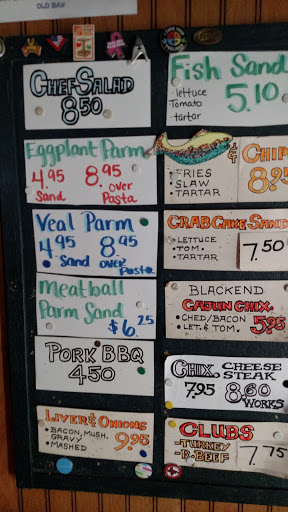 OLD BAY
CHEF SALAD
8.50
Eggplant Parm
4.95 8.95
Sand over
Pasta
Veal Parm
4.95 8.95
Sand over
Pasta
Meatball
Parm Sand
$6.25
PORK BBQ
4.50
LIVER & ONIONS
• BACON, MUSH,
GRAVY
• MASHED
9.95
Fish Sand
- lettuce
Tomato
- tartar
5.10
& CHIP
• FRIES
• SLAW
• TARTAR
8.95
CRAB CAKE SAND
• LETTUCE
• TOM.
• TARTAR
7.50
BLACKEND
CAJUN CHX.
• CHED/BACON
• LET. & TOM.
5.95
CHX. CHEESE
STEAK
7.95 8.60
WORKS
CLUBS
- TURKEY
- R. BEEF
7.75